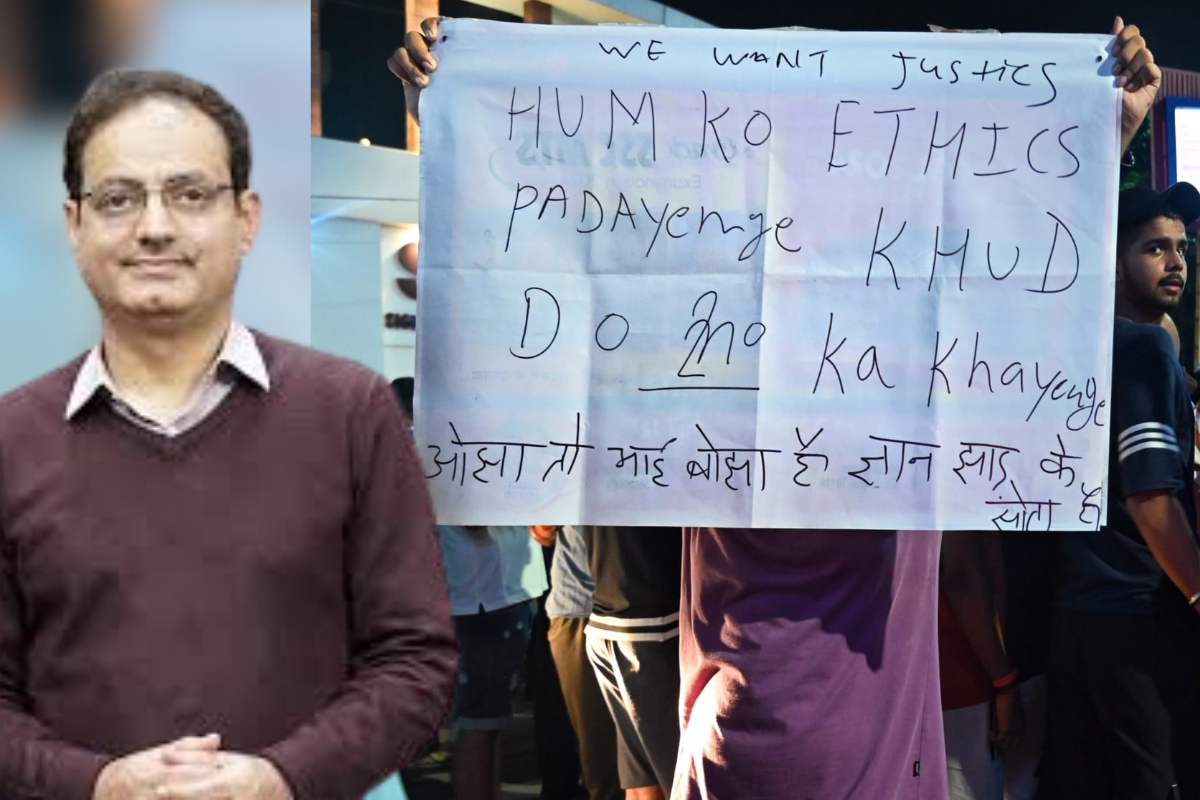 WE WANT JUSTICS
HUM KO ETHICS
PADAYenge KHUD
DO no Ka Khayenge
ओझा तो भाई बोझा है ज्ञान झाड़ के
सोता है